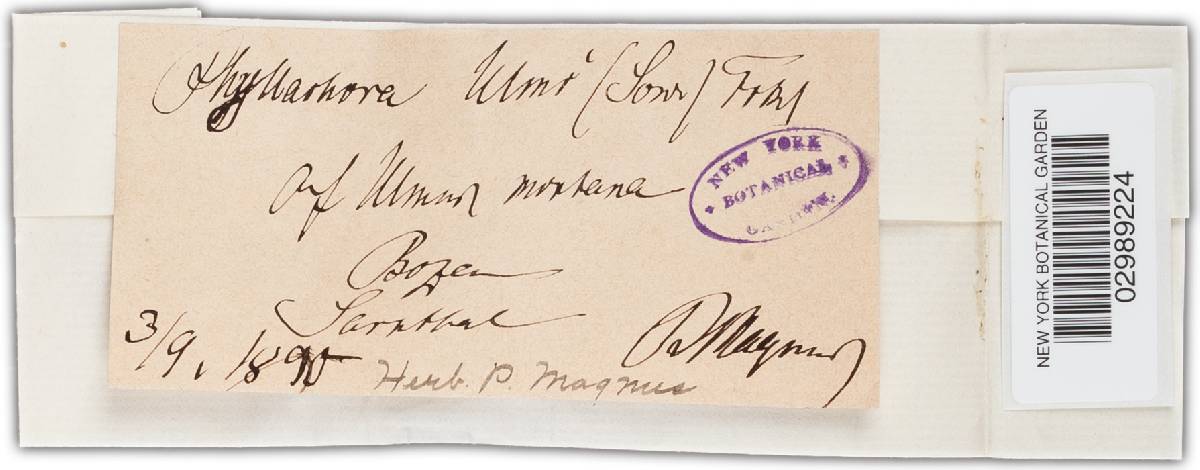 Phyllachora Ulmi (Sow) Fckl
Auf Ulmus montana
Bozen
Sarnthal
3/9. 1895
P Magnus
Herb. P. Magnus
NEW YORK
BOTANICAL
GARDEN.
NEW YORK BOTANICAL GARDEN
02989224